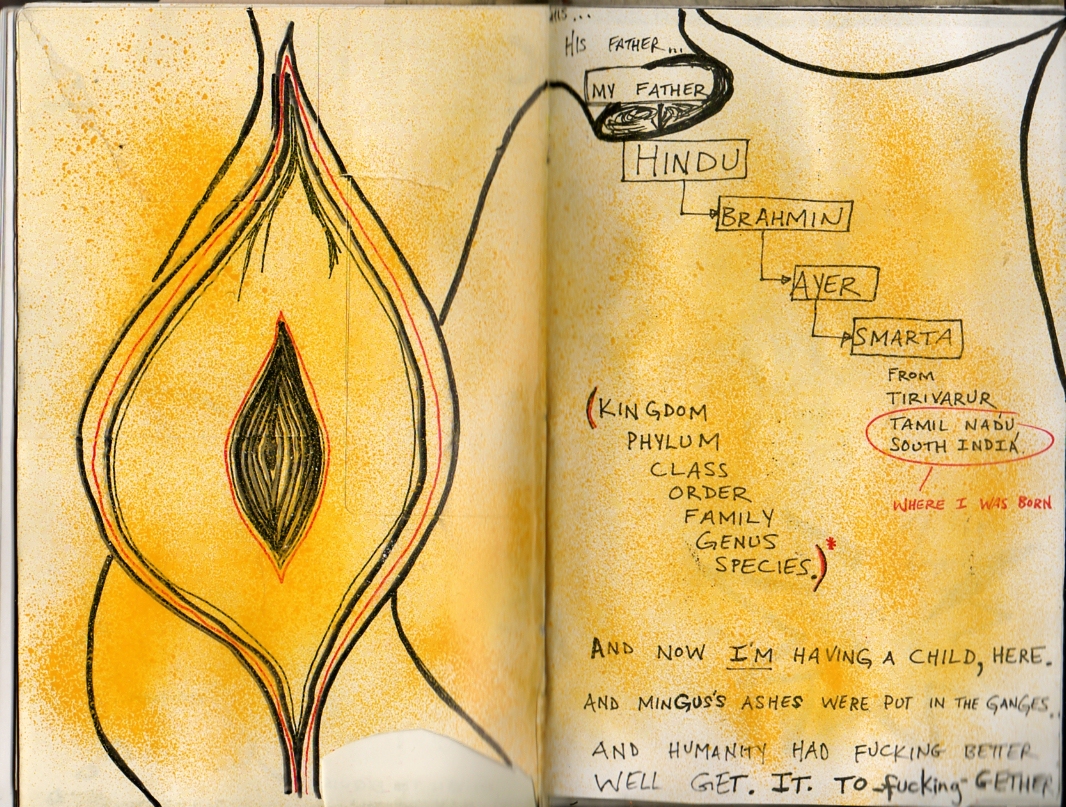 HIS FATHER...
MY FATHER
HINDU
BRAHMIN
AYER
SMARTA
FROM
TIRIVARUR
TAMIL NADU
SOUTH INDIA.
WHERE I WAS BORN
(KINGDOM
PHYLUM
CLASS
ORDER
FAMILY
GENUS
SPECIES.)*
AND NOW I'M HAVING A CHILD, HERE.
AND MINGUS'S ASHES WERE PUT IN THE GANGES..
AND HUMANITY HAD FUCKING BETTER
WELL GET. IT. TO-fucking-GETHER